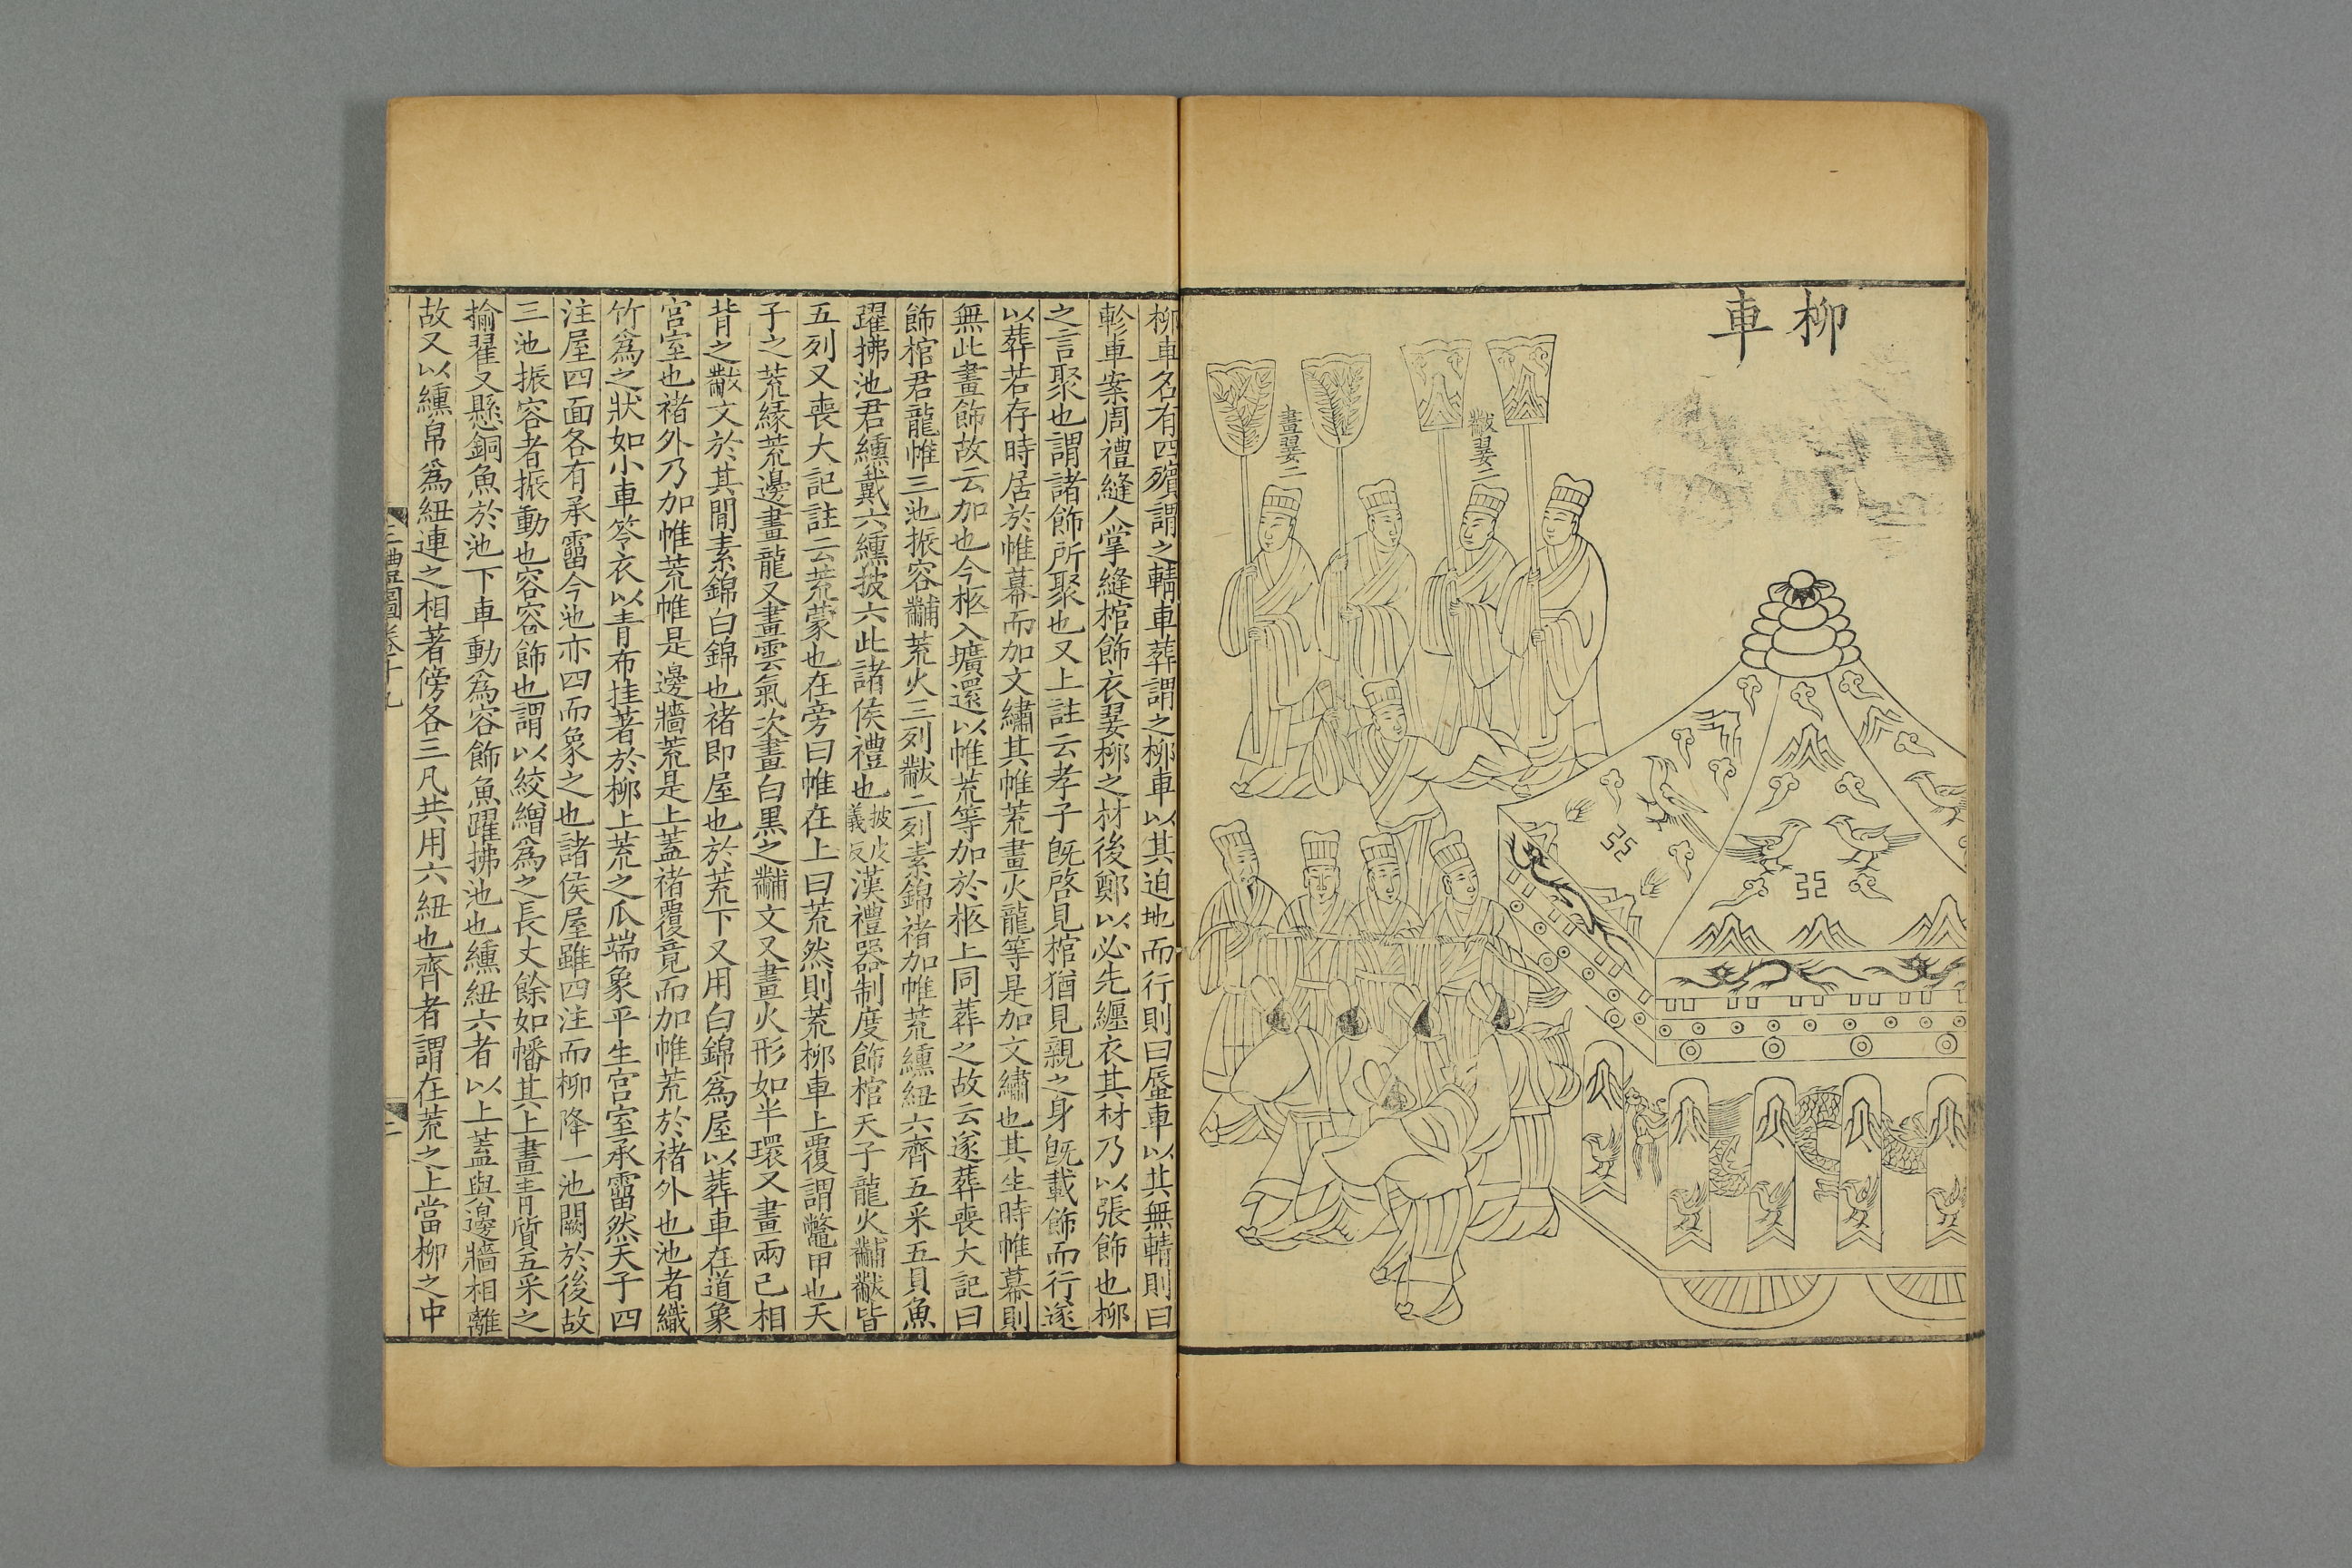 柳車
黻翣二
畫翣二
柳車名有四殯謂之輤車葬謂之柳車以其迫地而行則曰蜃車以其無輤則曰
軫車案周禮縫人掌縫棺飾衣翣柳之材後鄭以必先纏衣其材乃以張飾也柳
之言聚也謂諸飾所聚也又上註云孝子既啓見棺猶見親之身既載飾而行遂
以葬若存時居於帷幕而加文繡其帷荒畫火龍等是加文繡也其生時帷幕則
無此畫飾故云加也今柩入壙還以帷荒等加於柩上同葬之故云遂葬喪大記曰
飾棺君龍帷三池振容黼荒火三列黻二列素錦褚加帷荒纁紐六齊五采五貝魚
躍拂池君纁戴六纁披六此諸侯禮也披皮義反漢禮器制度飾棺天子龍火黼黻皆
五列又喪大記註云荒蒙也在旁曰帷在上曰荒然則荒柳車上覆謂鼈甲也天
子之荒緣荒邊畫龍又畫雲氣次畫白黑之黼文又畫火形如半環又畫兩己相
背之黻文於其閒素錦白錦也褚即屋也於荒下又用白錦爲屋以葬車在道象
宮室也褚外乃加帷荒帷是邊牆荒是上蓋褚覆竟而加帷荒於褚外也池者織
竹爲之狀如小車笭衣以青布挂著於柳上荒之爪端象平生宮室承霤然天子四
注屋四面各有承霤今池亦四而象之也諸侯屋雖四注而柳降一池闕於後故
三池振容者振動也容容飾也謂以絞繒爲之長丈餘如幡其上畫青質五采之
揄翟又懸銅魚於池下車動爲容飾魚躍拂池也纁紐六者以上蓋與邊牆相離
故又以纁帛爲紐連之相著傍各三凡共用六紐也齊者謂在荒之上當柳之中
三禮圖卷十九